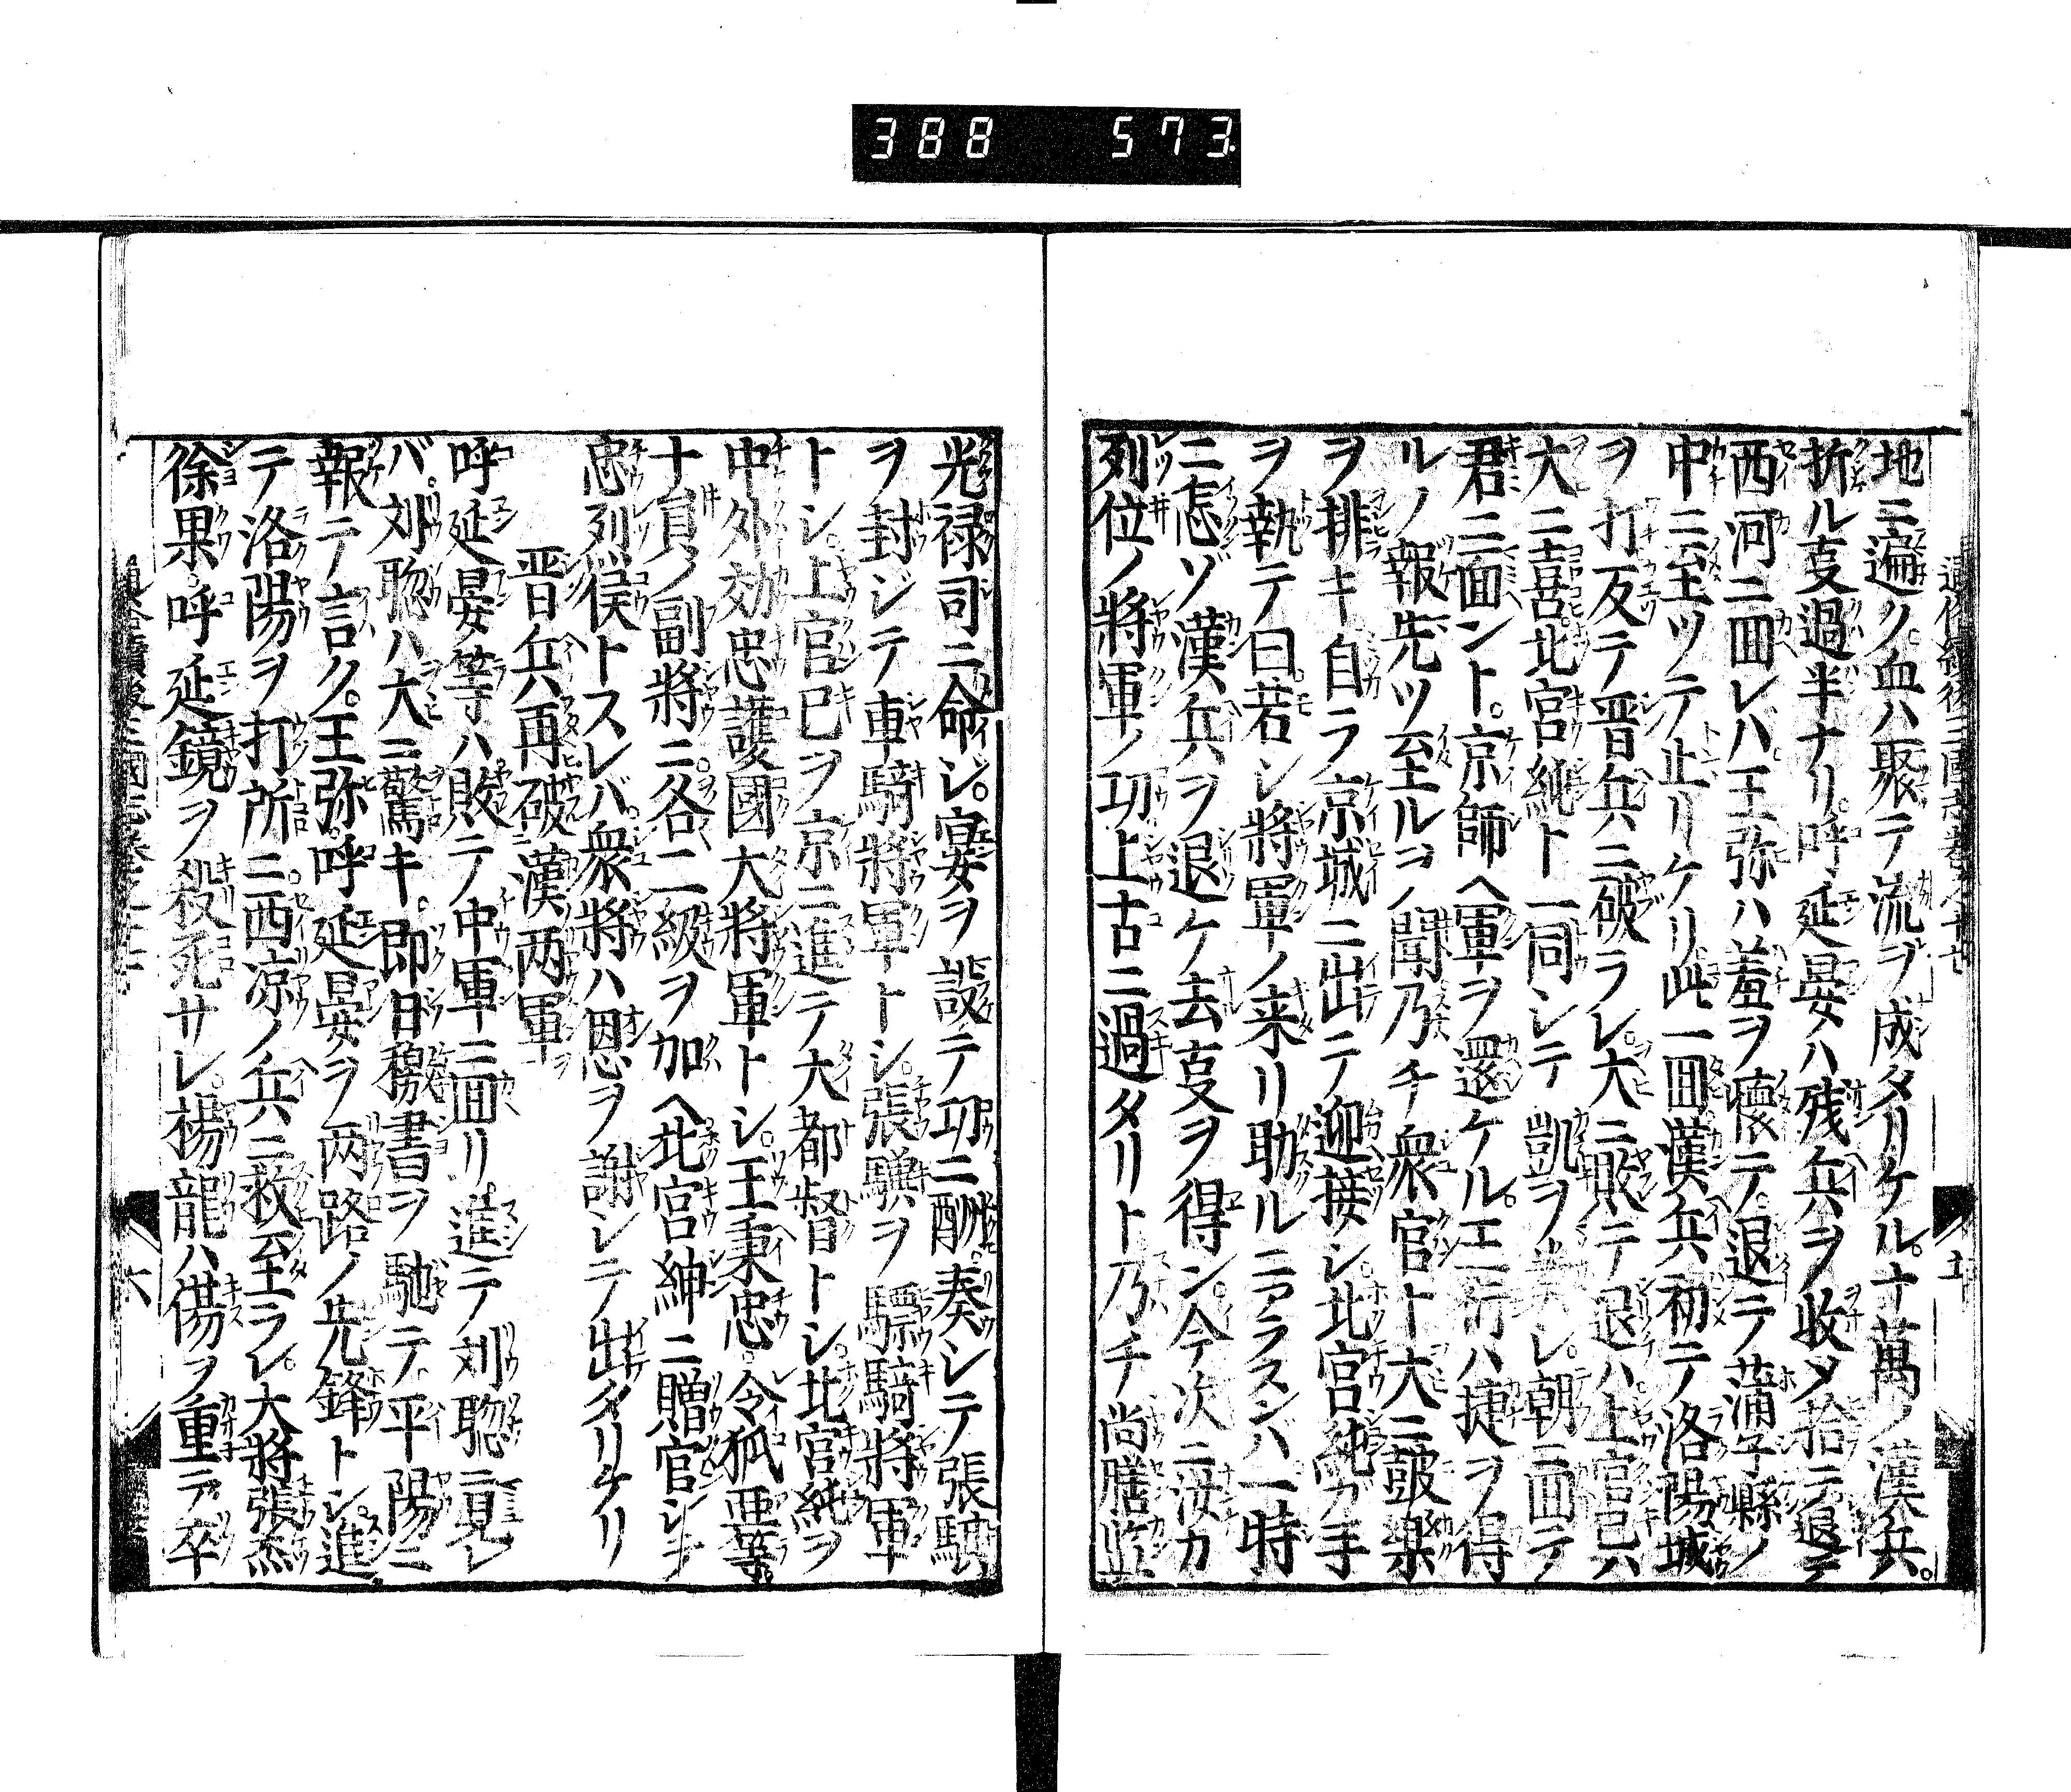 388 573
地ニ遍ク。血ハ聚テ流ヲ成タリケル。十萬ノ漢兵。
折ル叓過半ナリ。呼延晏ハ残兵ヲ收メ拾テ退テ
西河ニ囬レハ王弥ハ羞ヲ懷テ。退テ蒲子縣ノ
中ニ至ツテ止リケリ。此一囬漢兵初テ洛陽城
ヲ打反テ晋兵ニ破ラレ。大ニ敗テ退ハ上官巳ハ
大ニ喜。北宮純ト一同シテ凱ヲ奏レ。朝ニ囬テ
君ニ面ント。京師ヘ軍ヲ還ケル。王衍ハ捷ヲ得
ルノ報先ツ至ルヿノ聞乃チ衆官ト大ニ皷樂
ヲ排キ自ラ京城ニ出テ迎接シ北宮純ガ手
ヲ執テ曰。若シ將軍ノ来リ助ルニアラスンバ一時
ニ怎ゾ漢兵ヲ退ケ去叓ヲ得ン。今次ニ汝カ
列位ノ將軍ノ功上古ニ過タリト乃チ尚膳監
光禄司ニ命シ。宴ヲ設テ功ニ酬。奏シテ張騏
ヲ封シテ車騎將軍トシ。張驥ヲ驃騎將軍
トシ。上官巳ヲ京ニ進テ大都督トシ。北宮純ヲ
中外効忠護國大將軍トシ。王秉忠。令狐亜等。
十員ノ副將ニ各二級ヲ加ヘ北宮紳ニ贈官シテ
忠列侯トスレバ衆將ハ恩ヲ謝シテ出タリケリ
晋兵再破漢両軍
呼延晏等ハ敗テ中軍ニ囬リ。進テ刘聡ニ見レ
バ。刘聡ハ大ニ驚キ。即日檄書ヲ馳テ平陽ニ
報テ言ク。王弥。呼延晏ラ両路ノ先鋒トシ。進
テ洛陽ヲ打所ニ。西凉ノ兵ニ救至ラレ。大將張杰
徐果。呼延鏡ヲ殺死サレ。楊龍ハ傷ヲ重テ。卒
六